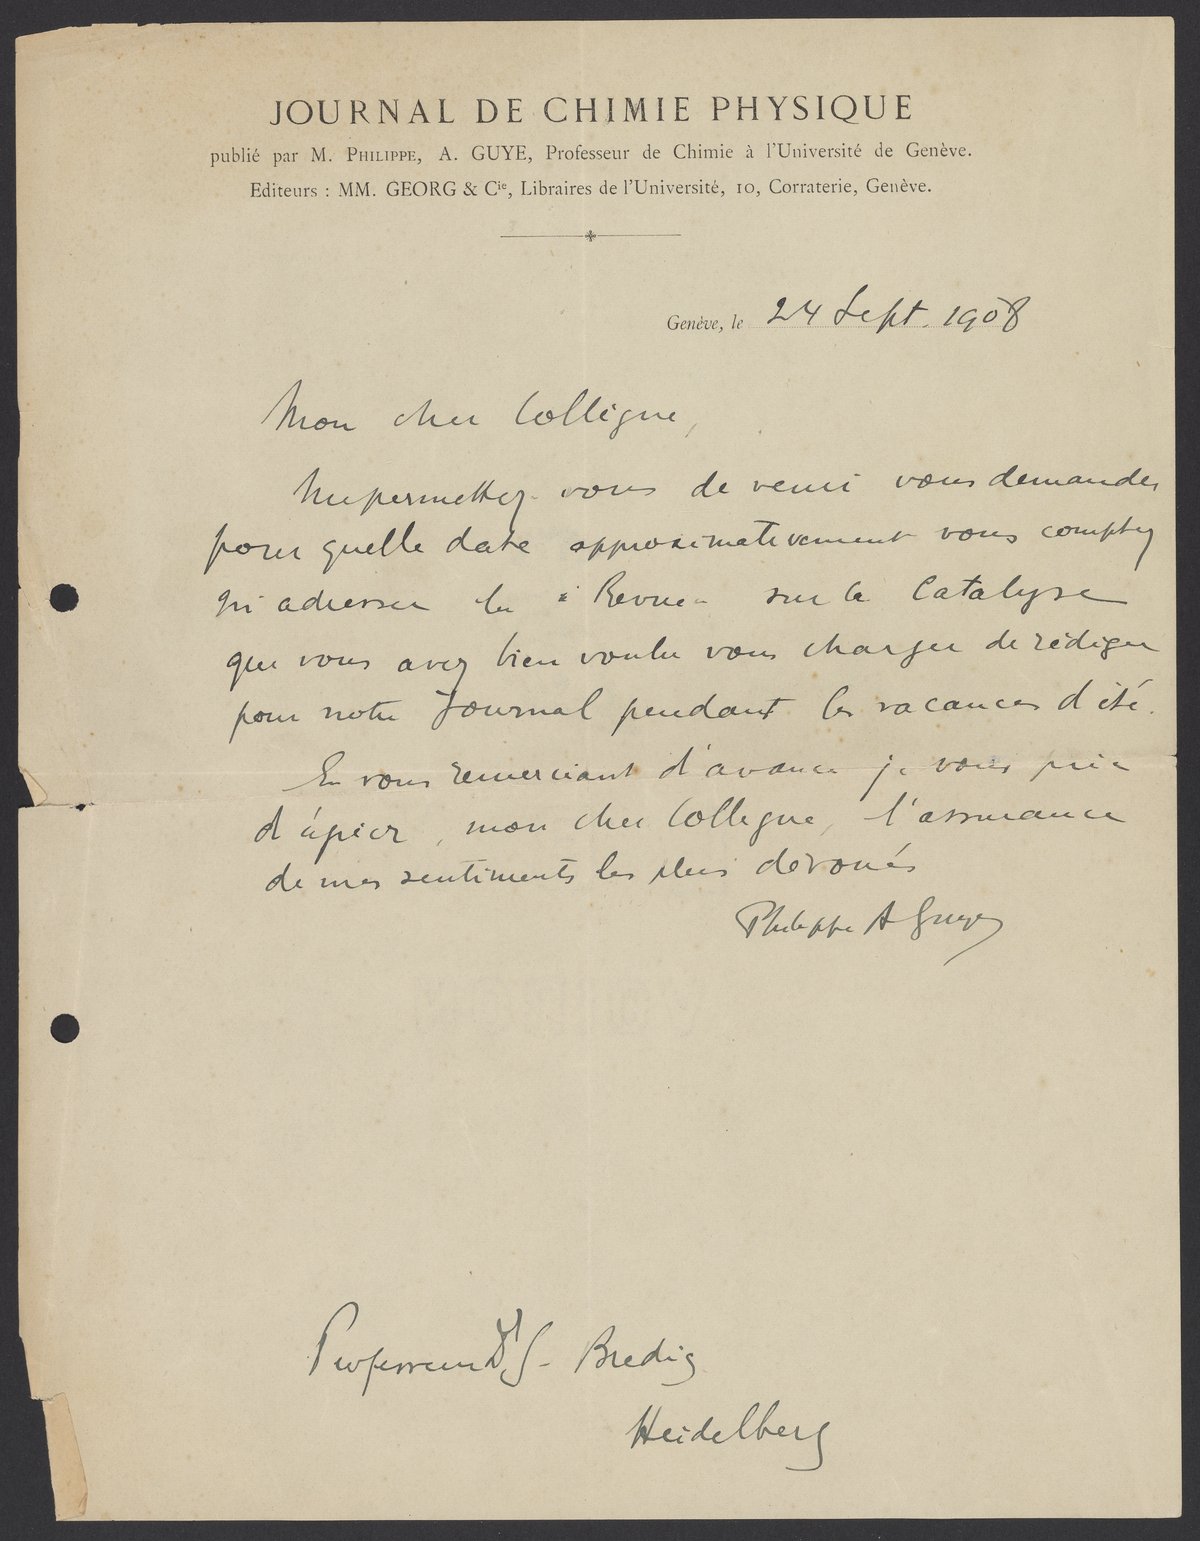 JOURNAL DE CHIMIE PHYSIQUE
publié par M. PHILIPPE, A. GUYE, Professeur de Chimie à l'Université de Genève.
Editeurs : MM. GEORG & Cie, Libraires de l'Université, 10, Corraterie, Genève.
Genève, le 24 Sept. 1908
Mon cher Collègue,
Me permettez-vous de venir vous demander
pour quelle date approximativement vous comptez
m'adresser la "Revue" sur la Catalyse
que vous avez bien voulu vous charger de rédiger
pour notre Journal pendant les vacances d'été.
En vous remerciant d'avance je vous prie
d'agréer, mon cher Collegue, l'assurance
de mes sentiments les plus dévoués
Philippe A Guye
Professeur Dr G. Bredig
Heidelberg